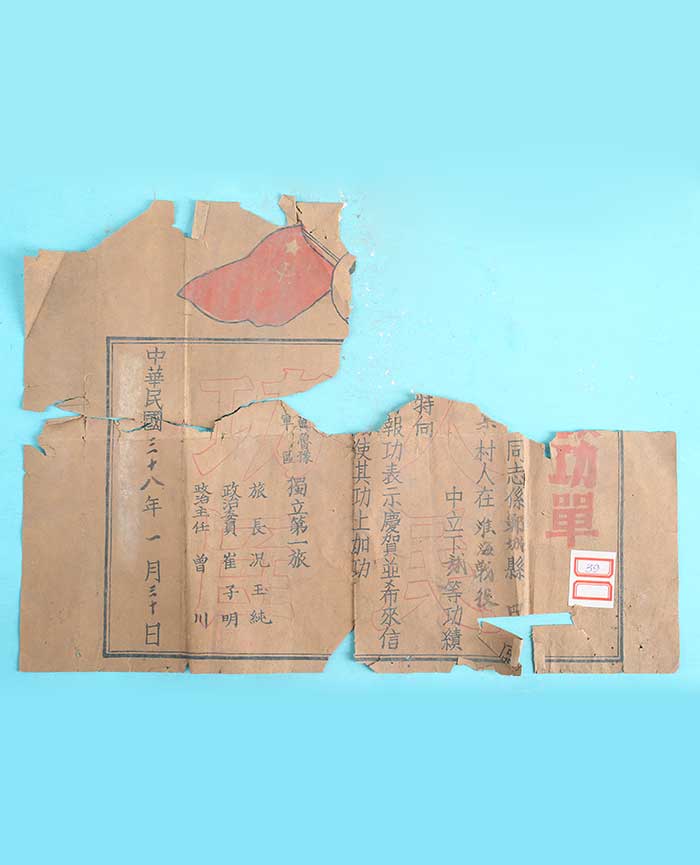 功單
同志係鄄城縣
村人在淮海戰役
中立下等功績
特向
報功表示慶賀並希來信
使其功上加功
魯豫
軍區
獨立第一旅
旅長況玉純
政治委員崔子明
政治主任曾川
中華民國三十八年一月三十日
39